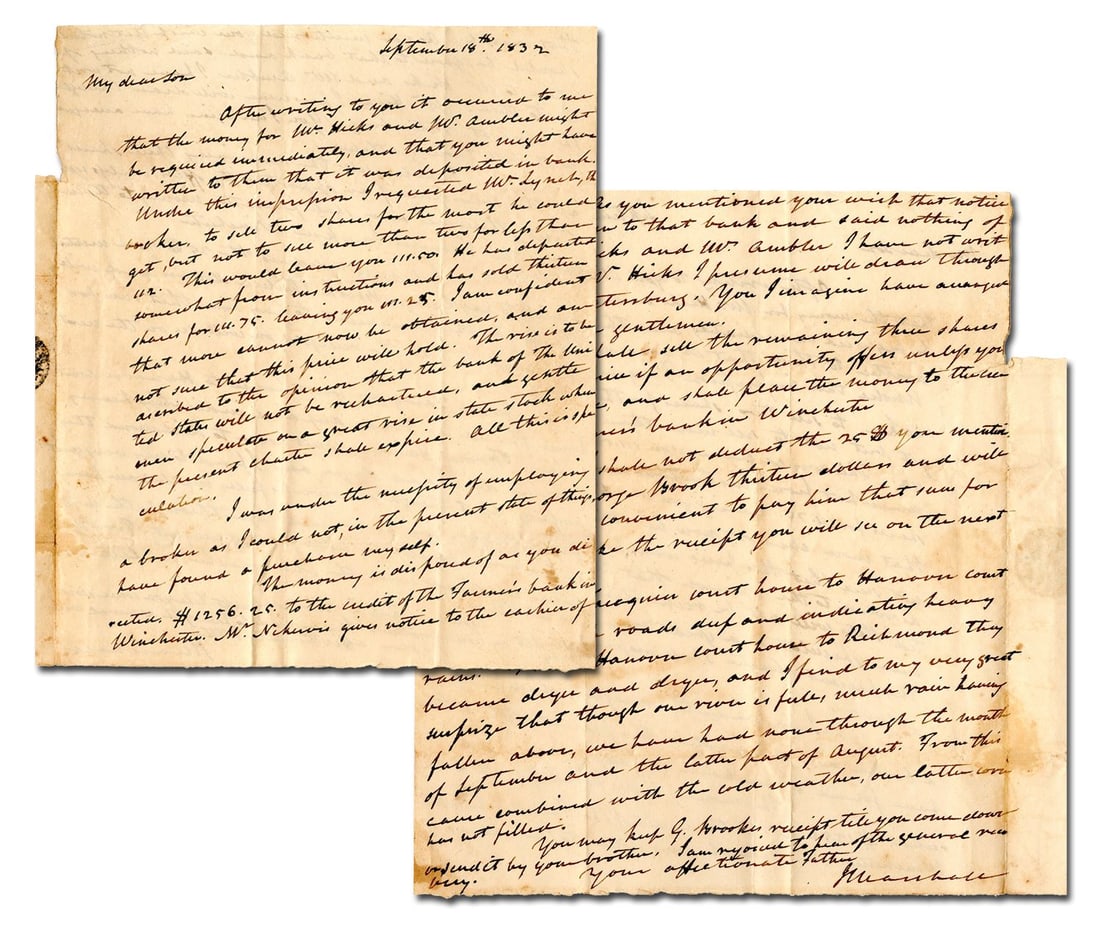 September 18th. 1832
My dear Son
After writing to you it occurred to me
that the money for Mr. Hicks and Mr. Ambler might
be required immediately, and that you might have
written to them that it was deposited in bank.
Under this impression I requested Mr. Lynch, th
broker, to sell two shares for the most he could
get, but not to sell more than two for less than
112. This would leave you 111.50. He has departed
somewhat from instructions and has sold thirteen
shares for 111.75. leaving you 111.25. I am confident
that more cannot now be obtained, and am
not sure that this price will hold. The rise is to be
ascribed to the opinion that the bank of the Uni
ted States will not be rechartered, and gentle
men speculate on a great rise in state stock when
the present charter shall expire. All this is spe
culation.
I was under the necessity of employing
a broker as I could not, in the present state of things,
have found a purchaser myself.
The money is disposed of as you di
rected. $1256.25. to the credit of the Farmer's bank in
Winchester. Mr. Nekervis gives notice to the cashier of
as you mentioned your wish that notice
to that bank and said nothing of
icks and Mr. Ambler I have not writ
Hicks I presume will draw through
tersburg. You I imagine have arranged
gentlemen.
sell the remaining three shares
if an opportunity offers unless you
and shall place the money to the cre
bank in Winchester
shall not deduct the 25$ you mention.
orge Brook thirteen dollars and will
convenient to pay him that sum for
the receipt you will see on the next
court house to Hanover court
roads deep and indicating heavy
rains. Hanover court house to Richmond they
became dryer and dryer, and I find to my very great
surprize that though our river is full, much rain having
fallen above, we have had none through the month
of September and the latter part of August. From this
cause combined with the cold weather, our latter corn
has not filled.
You may keep G. Brookes receipt till you come down
or send it by your brother. I am rejoiced to hear of the general reco
very.
Your affectionate Father
J Marshall